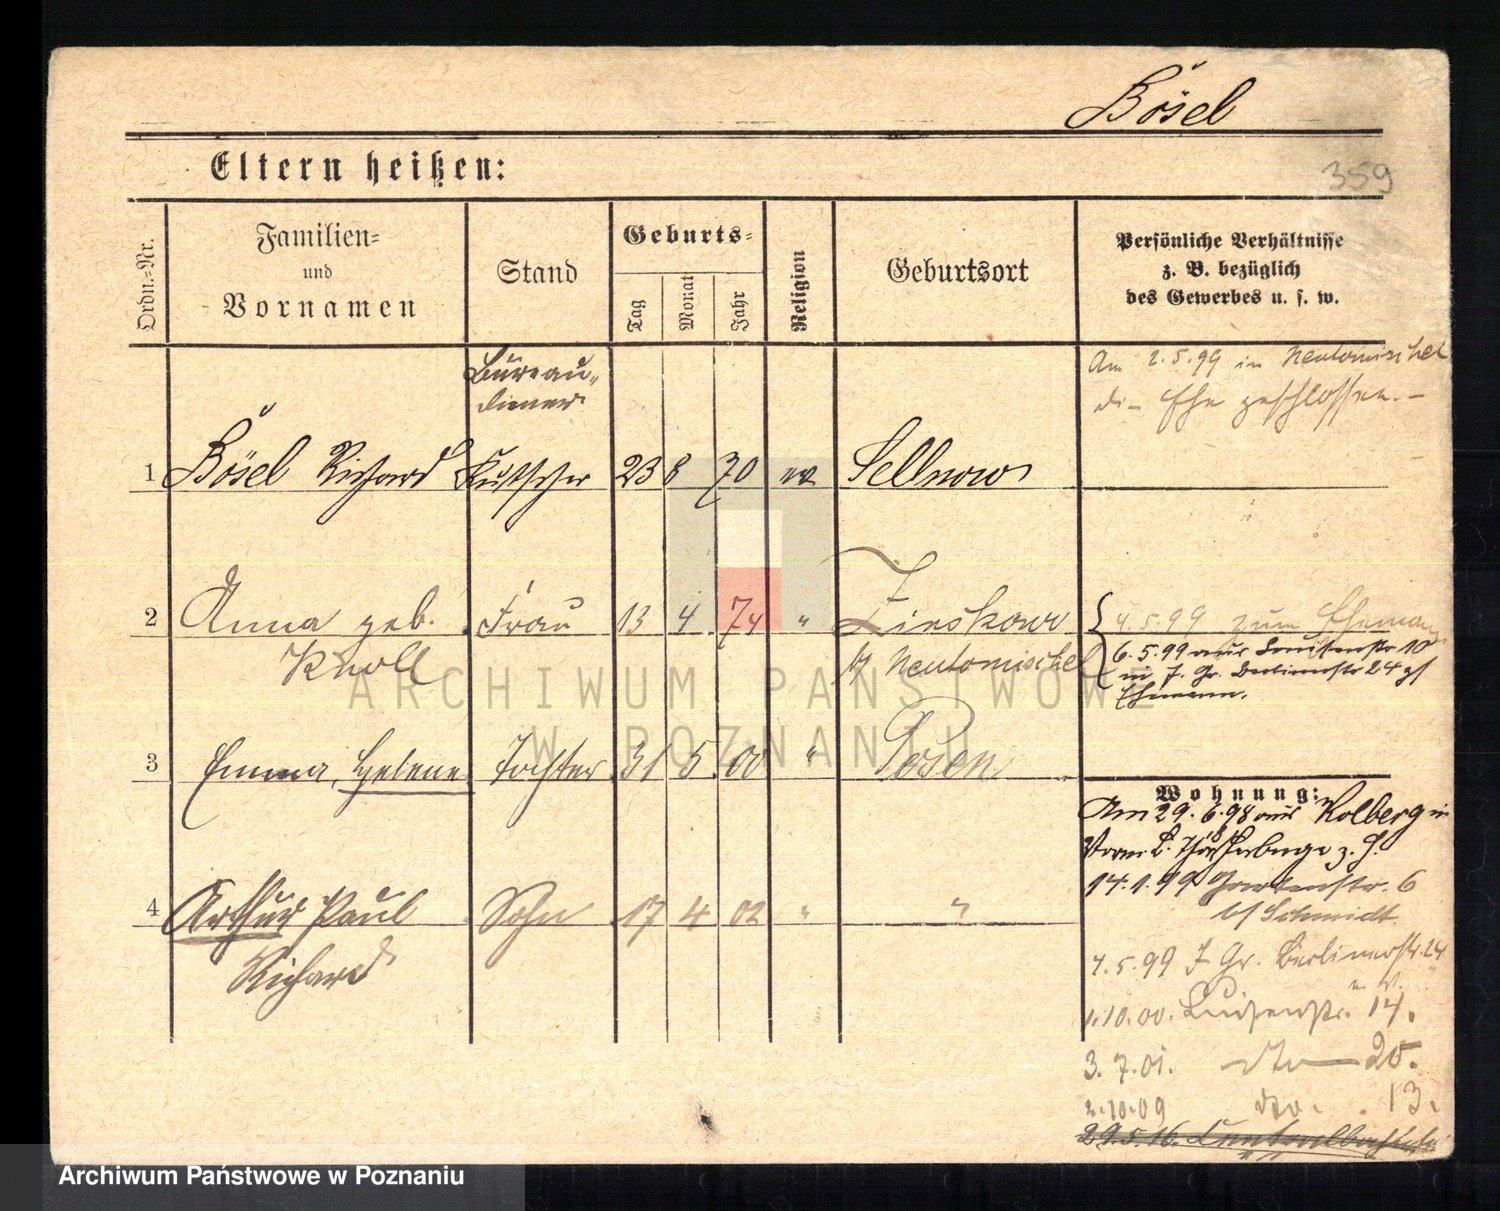 Bösel
Eltern heißen:
359
Ordn.-Nr.
Familien-
und
Vornamen
Stand
Geburts-
Tag
Monat
Jahr
Religion
Geburtsort
Persönliche Verhältnisse
z. B. bezüglich
des Gewerbes u. s. w.
Bureau-
diener
Am 2.5.99 in Neutomischel
die Ehe geschlossen.-
1 Bösel Richard Kutscher 23 8 70 ev Sellnow
2 Anna geb. Frau 13 4 74 " Zinskowo
Knoll
b/ Neutomischel
4.5.99 zum Ehemann
6.5.99 aus Louisenstr 10
in J. Gr. Berlinerstr 24 z/
Ehemann.
3 Emma, Helene Tochter 31 5. 00 " Posen
Wohnung:
Am 29.6.98 aus Kolberg in
z. H.
14.1.99 Gartenstr. 6
b/ Schmidt
4 Arthur Paul Sohn 17 4 02 " "
Richard
4.5.99 J Gr. Berlinerstr. 24
1.10.00. Luisenstr. 14.
3.7.01. dto 20.
2.10.09 dto. 13.
29.5.16.
ARCHIWUM PAŃSTWOWE
W POZNANIU
Archiwum Państwowe w Poznaniu